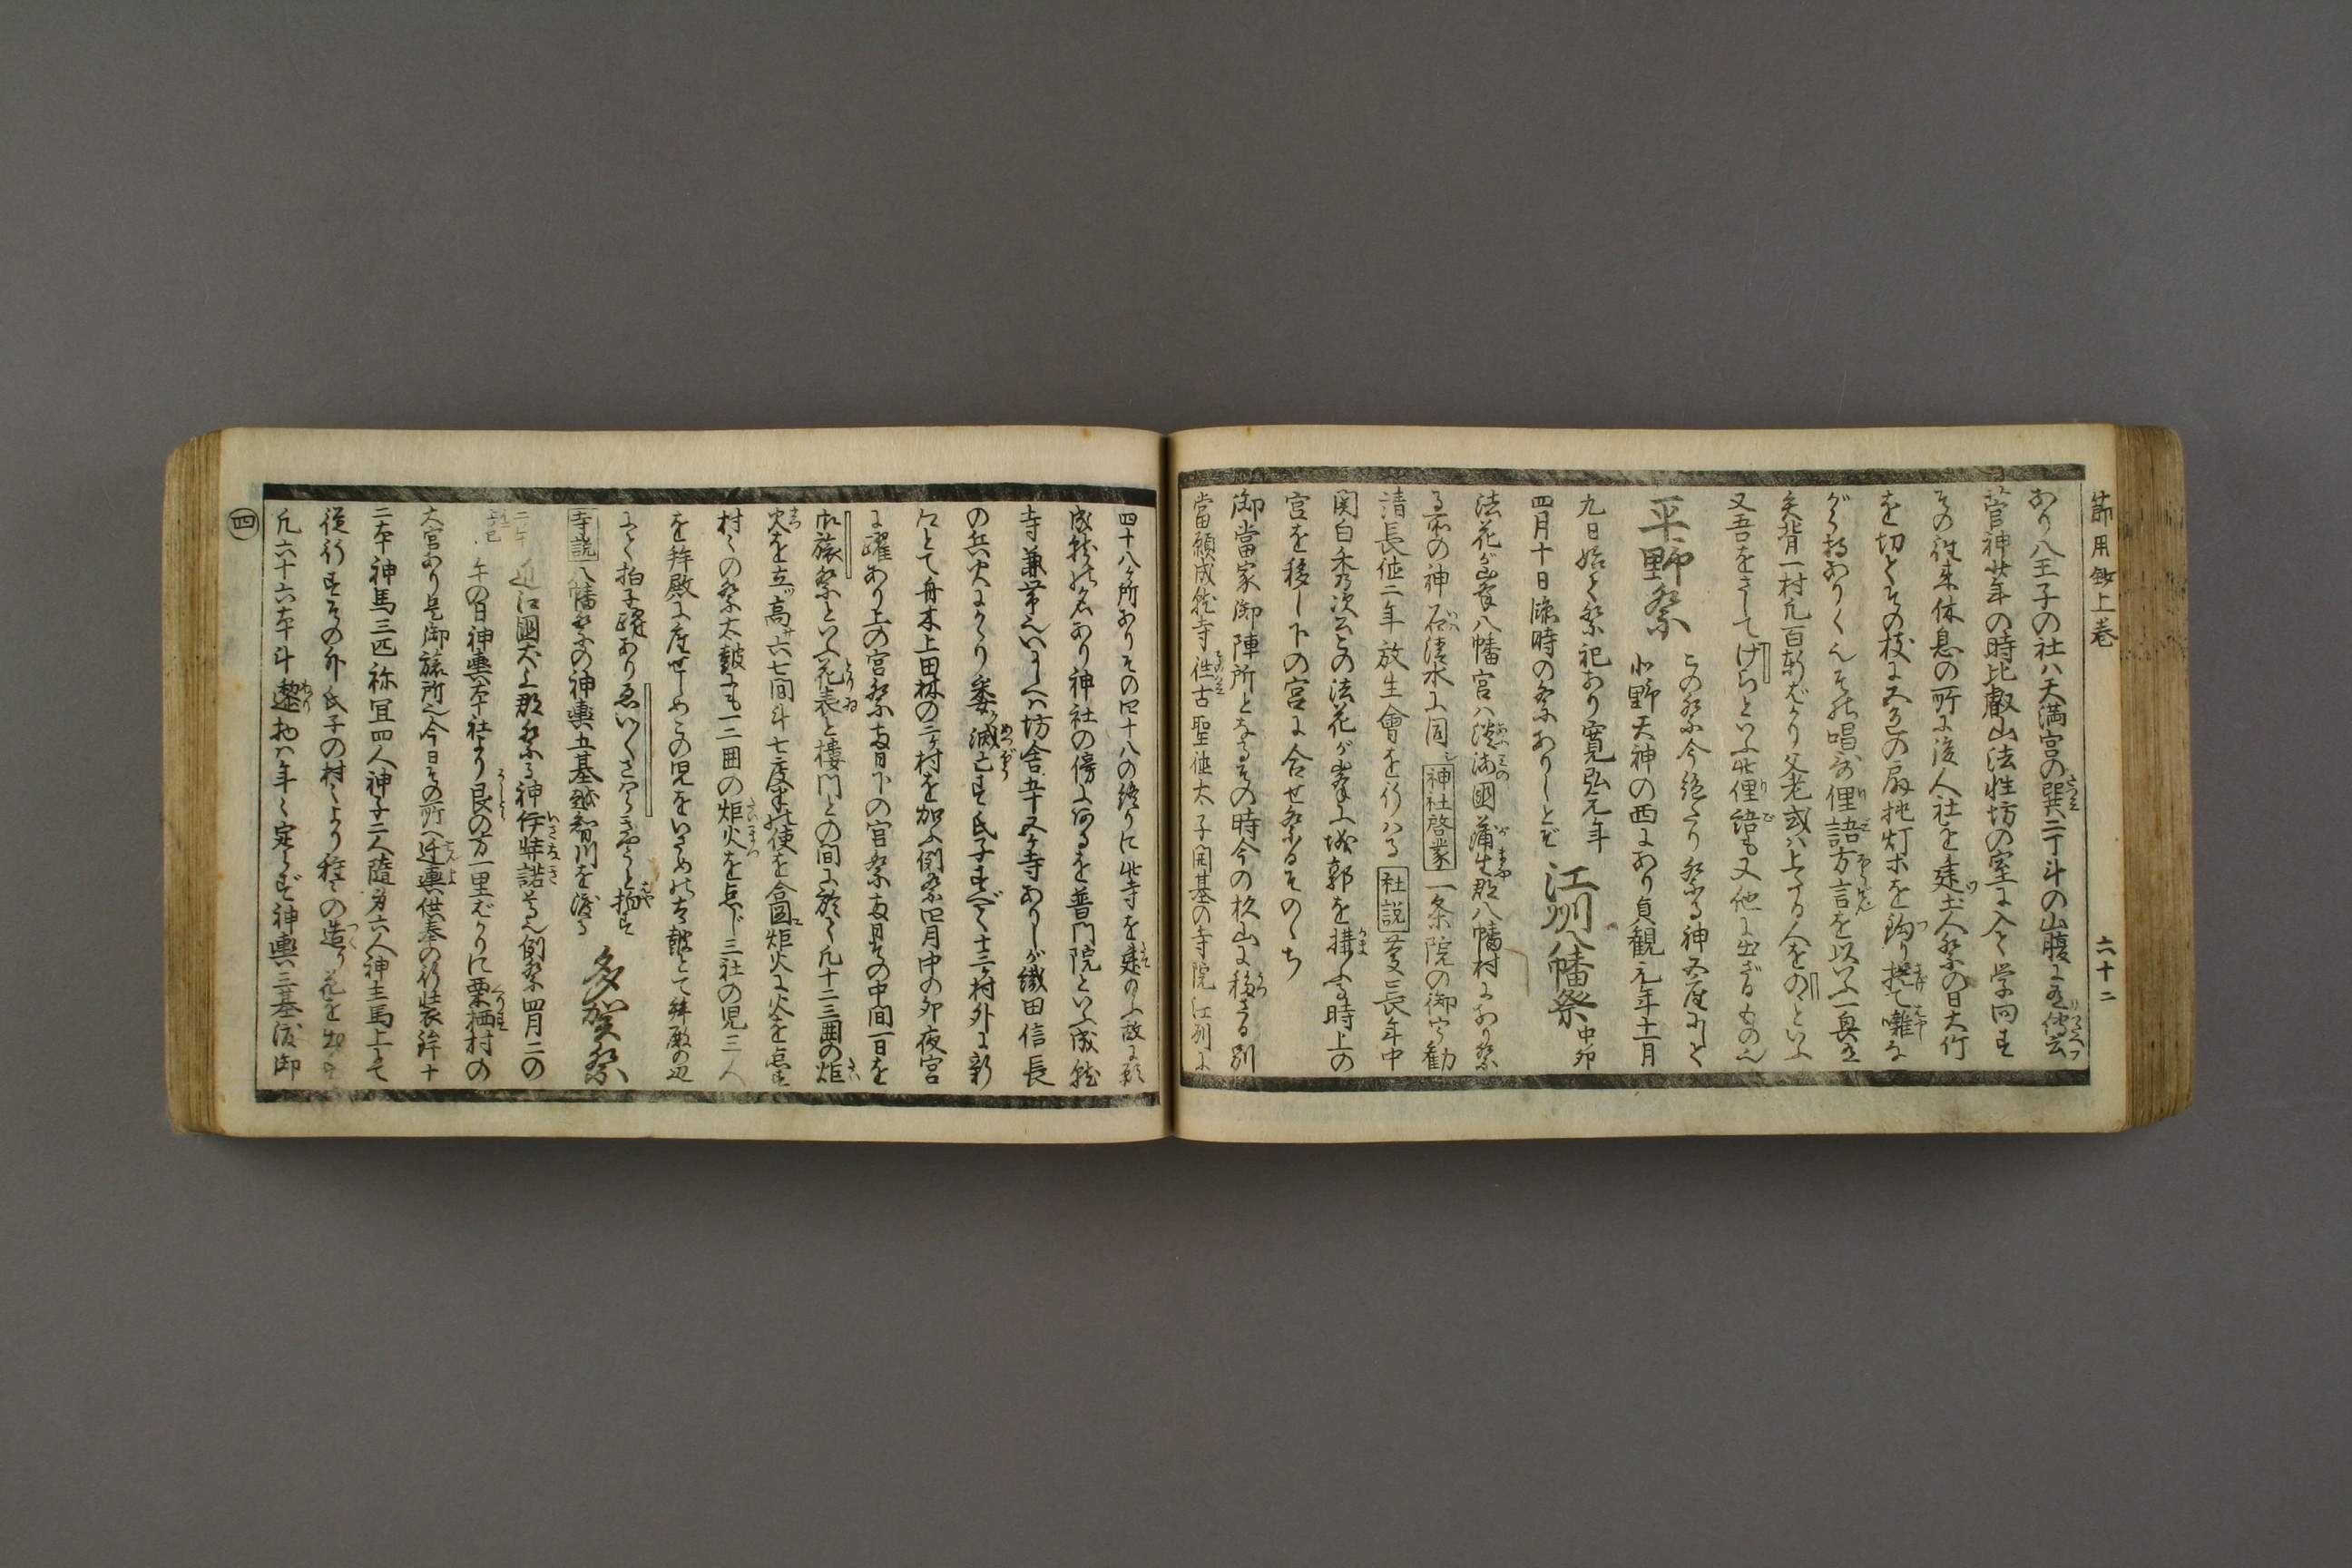 節用鈔上巻
六十二
あり八王子の社ハ天満宮の巽二丁斗の山腹に有傳云
菅神廿年の時比叡山法性坊の室に入て学問す
その往来休息の所に後人社を建土人祭の日大竹
を切てその枝に五色の扇挑灯ホを釣り捧て囃な
がら
唱哥俚語方言を以いふ一興也
矢背一村凡百軒ばかり父老或ハ上たる人をのゝといふ
又吾をさしてげらといふ此俚語も又他に出ざるもの也
平野祭
この祭今絶たり祭る神五座にして
北野天神の西にあり貞観元年十一月
九日始て祭祀あり寛弘元年
四月十日臨時の祭ありしとぞ
江州八幡祭
中卯
法花が峯八幡宮ハ淡海國蒲生郡八幡村にあり祭
る所の神石清水に同し神社啓蒙一条院の御宇勧
清長徳二年放生會を行ハる社説慶長年中
関白秀次公この法花が峯に城郭を構ふる時上の
宮を移し下の宮に合せ祭るそのゝち
御當家御陣所となるその時今の杦山に移さる別
當願成就寺往古聖徳太子開基の寺院江州に
四十八ヶ所ありその四十八の終りに此寺を建のふ故に願
成就の名あり神社の傍に有るを普門院といふ成就
寺兼帯也いにしへハ坊舎五十五ヶ寺ありしが織田信長
の兵火にかゝり委滅亡す氏子すべて十三ヶ村外に新
加とて舟木上田林の三ヶ村を加ふ例祭四月中の卯夜宮
に躍あり上の宮祭両日下の宮祭両日その中間一日を
旅祭といふ花表と楼門との間に於て凡十二三囲の炬
火を立高サ六七間斗七度半の使を合圖に炬火に火を点す
村々の祭太皷にも一二囲の炬火を点じ三社の児三人
を拝殿に座せしめこの児をいさめの太皷とて拝殿の辺
にて拍子躍あり
寺説八幡祭の神輿五基越智川を渡る
多賀祭
近江國犬上郡祭る神伊弉諾尊也例祭四月二の
午の日神輿本社より艮の方一里ばかりに栗栖村の
大宮あり是御旅所也今日その所へ迁輿供奉の行装鉾十
二本神馬三匹祢冝四人神子二人随身六人神主馬上にて
従行すその外氏子の村々より種々の造り花を出す
凡六十六本斗邌物ハ年々定らず神輿ハ三基渡御
四